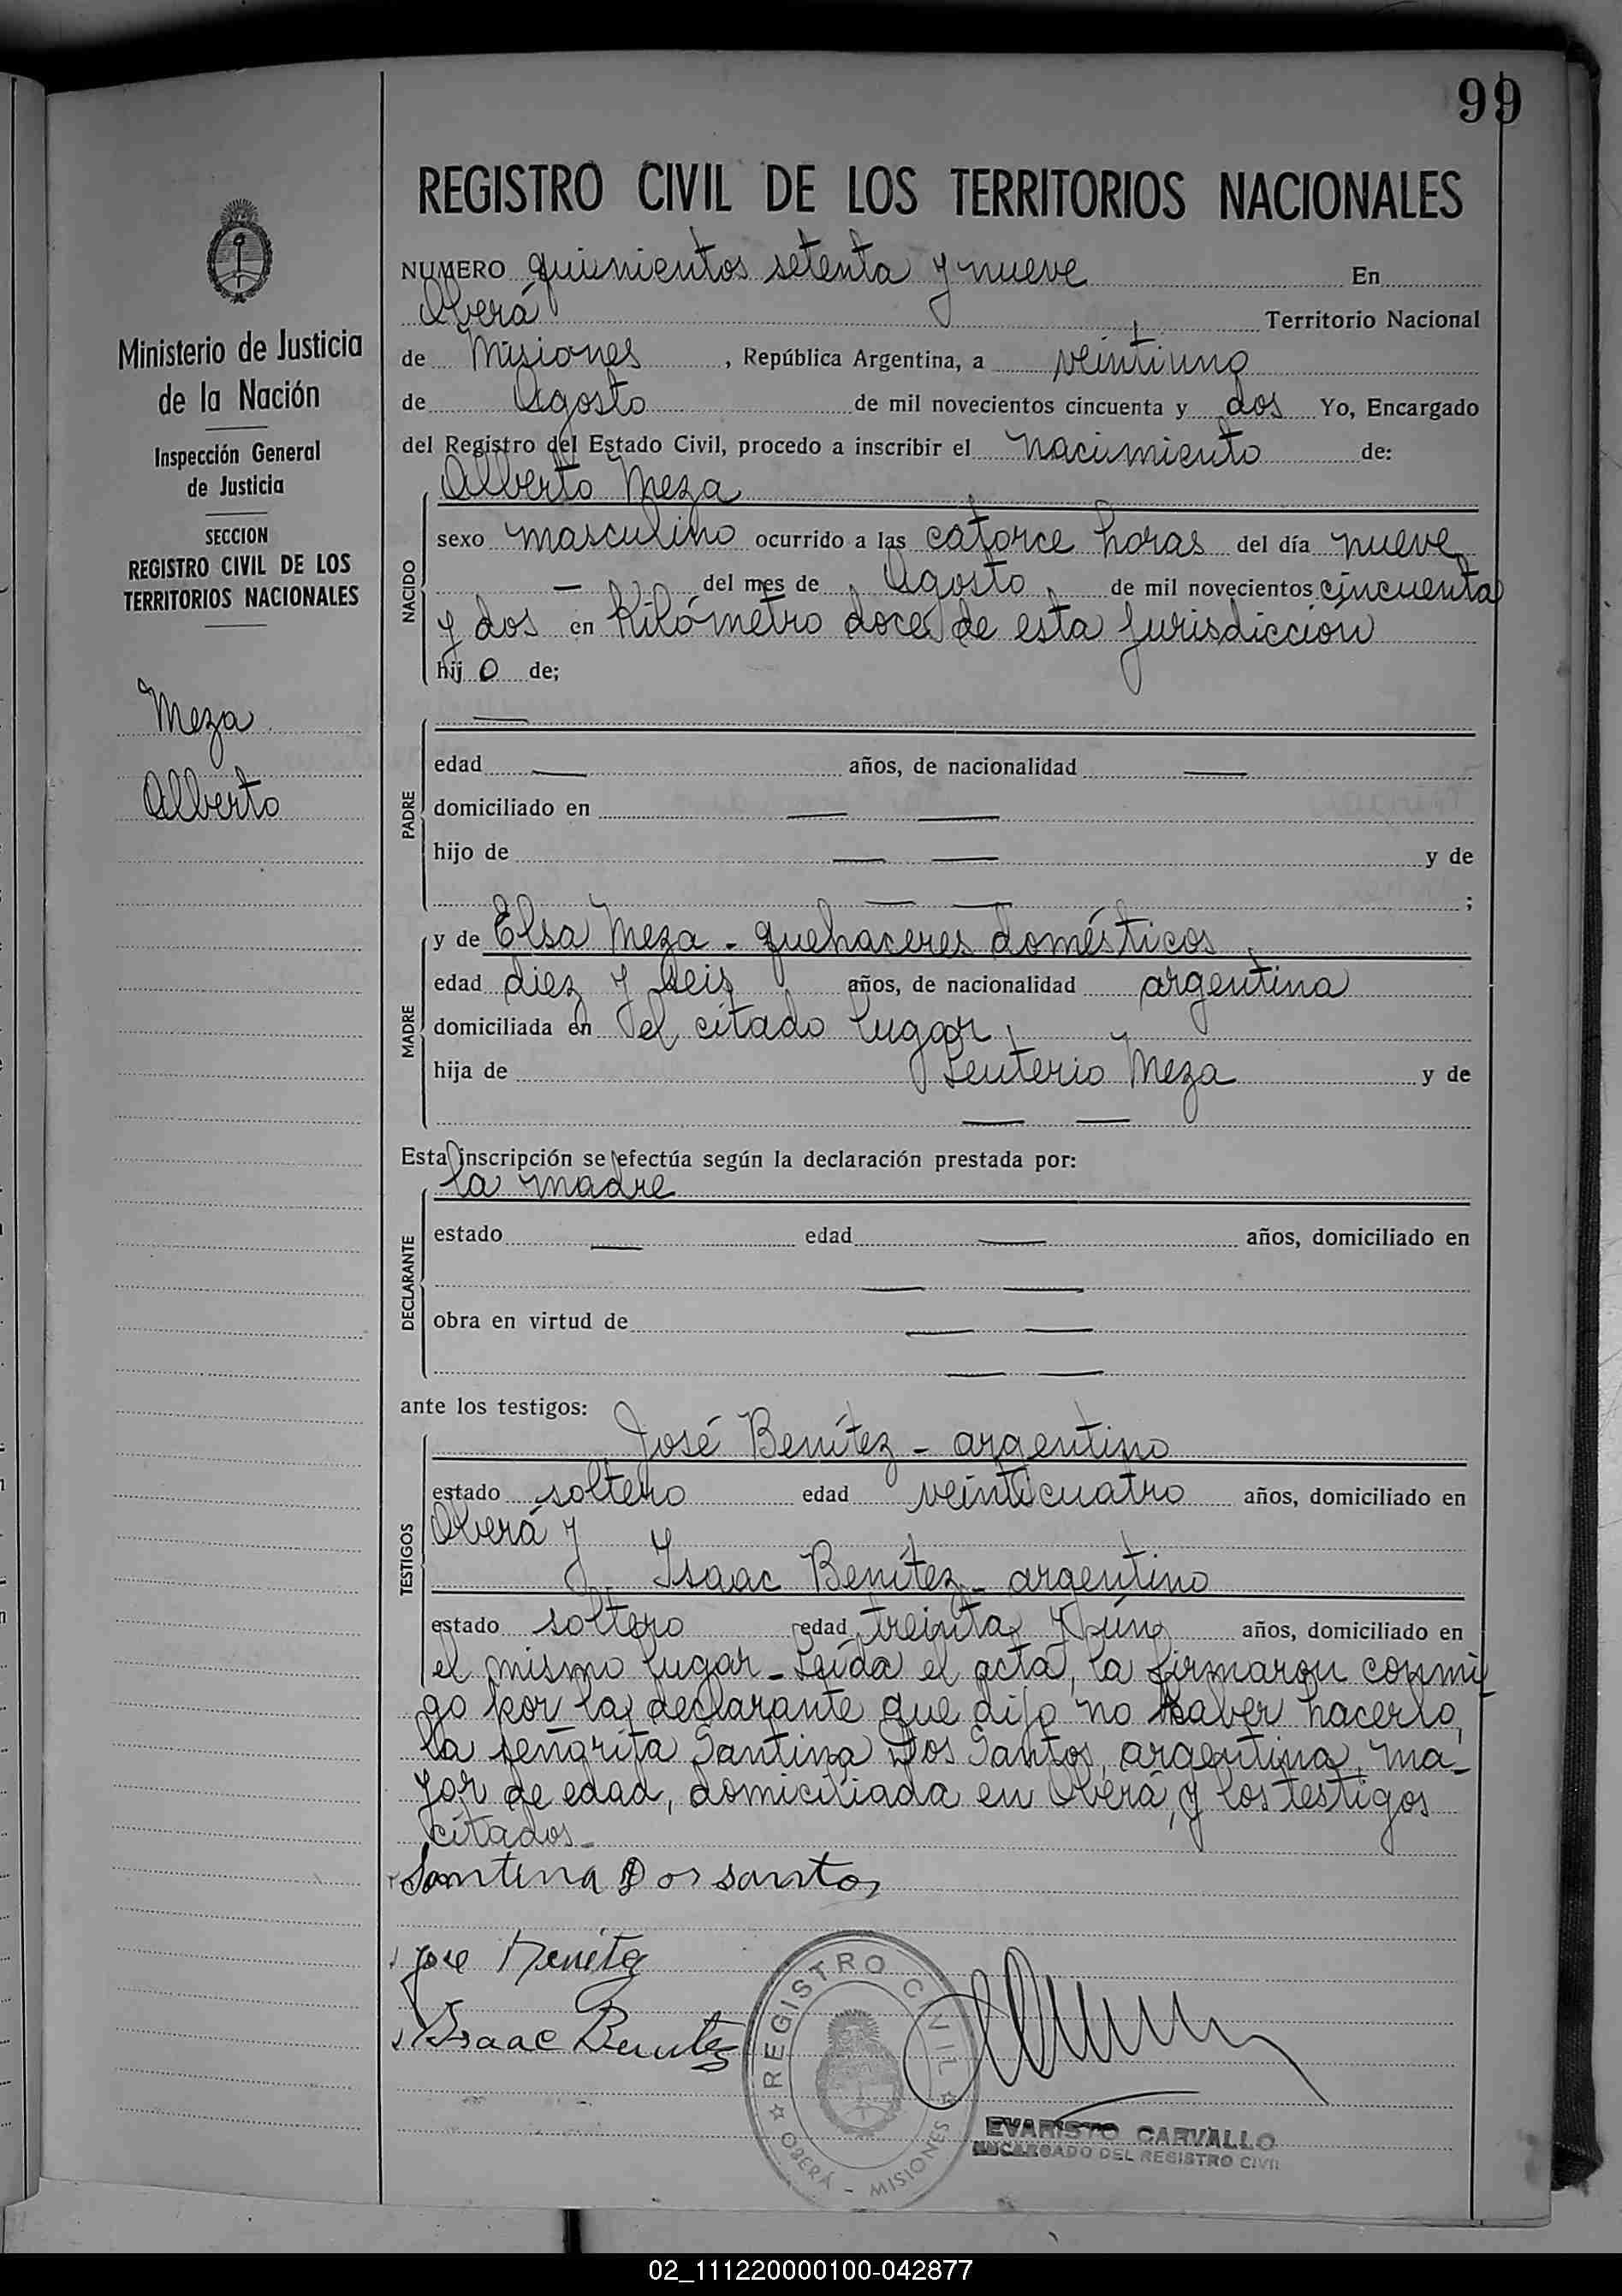 99
REGISTRO CIVIL DE LOS TERRITORIOS NACIONALES
Ministerio de Justicia
de la Nación
Inspección General
de Justicia
SECCION
REGISTRO CIVIL DE LOS
TERRITORIOS NACIONALES
Meza
Alberto
NUMERO quinientos setenta y nueve En
Oberá Territorio Nacional
de Misiones, República Argentina, a veintiuno
de Agosto de mil novecientos cincuenta y dos Yo, Encargado
del Registro del Estado Civil, procedo a inscribir el nacimiento de:
Alberto Meza
NACIDO
sexo masculino ocurrido a las catorce horas del día nueve
— del mes de Agosto de mil novecientos cincuenta
y dos en Kilómetro doce, de esta jurisdicción
hijo de;
PADRE
—
edad — años, de nacionalidad —
domiciliado en — —
hijo de — — y de
— — ;
MADRE
y de Elsa Meza - quehaceres domésticos
edad diez y seis años, de nacionalidad argentina
domiciliada en el citado lugar
hija de Leuterio Meza y de
— —
Esta inscripción se efectúa según la declaración prestada por:
DECLARANTE
la madre
estado — edad — años, domiciliado en
— —
obra en virtud de — —
— —
ante los testigos:
TESTIGOS
José Benítez - argentino
estado soltero edad veinticuatro años, domiciliado en
Oberá y
Isaac Benítez - argentino
estado soltero edad treinta y ún años, domiciliado en
el mismo lugar - Leída el acta, la firmaron conmi
go por la declarante que dijo no saber hacerlo,
la señorita Santina Dos Santos, argentina, ma-
yor de edad, domiciliada en Oberá, y los testigos
citados -
Santina Dos santos
Jose Benitez
Isaac Benitez
REGISTRO CIVIL
OBERÁ - MISIONES
EVARISTO CARVALLO
ENCARGADO DEL REGISTRO CIVIL
02_111220000100-042877